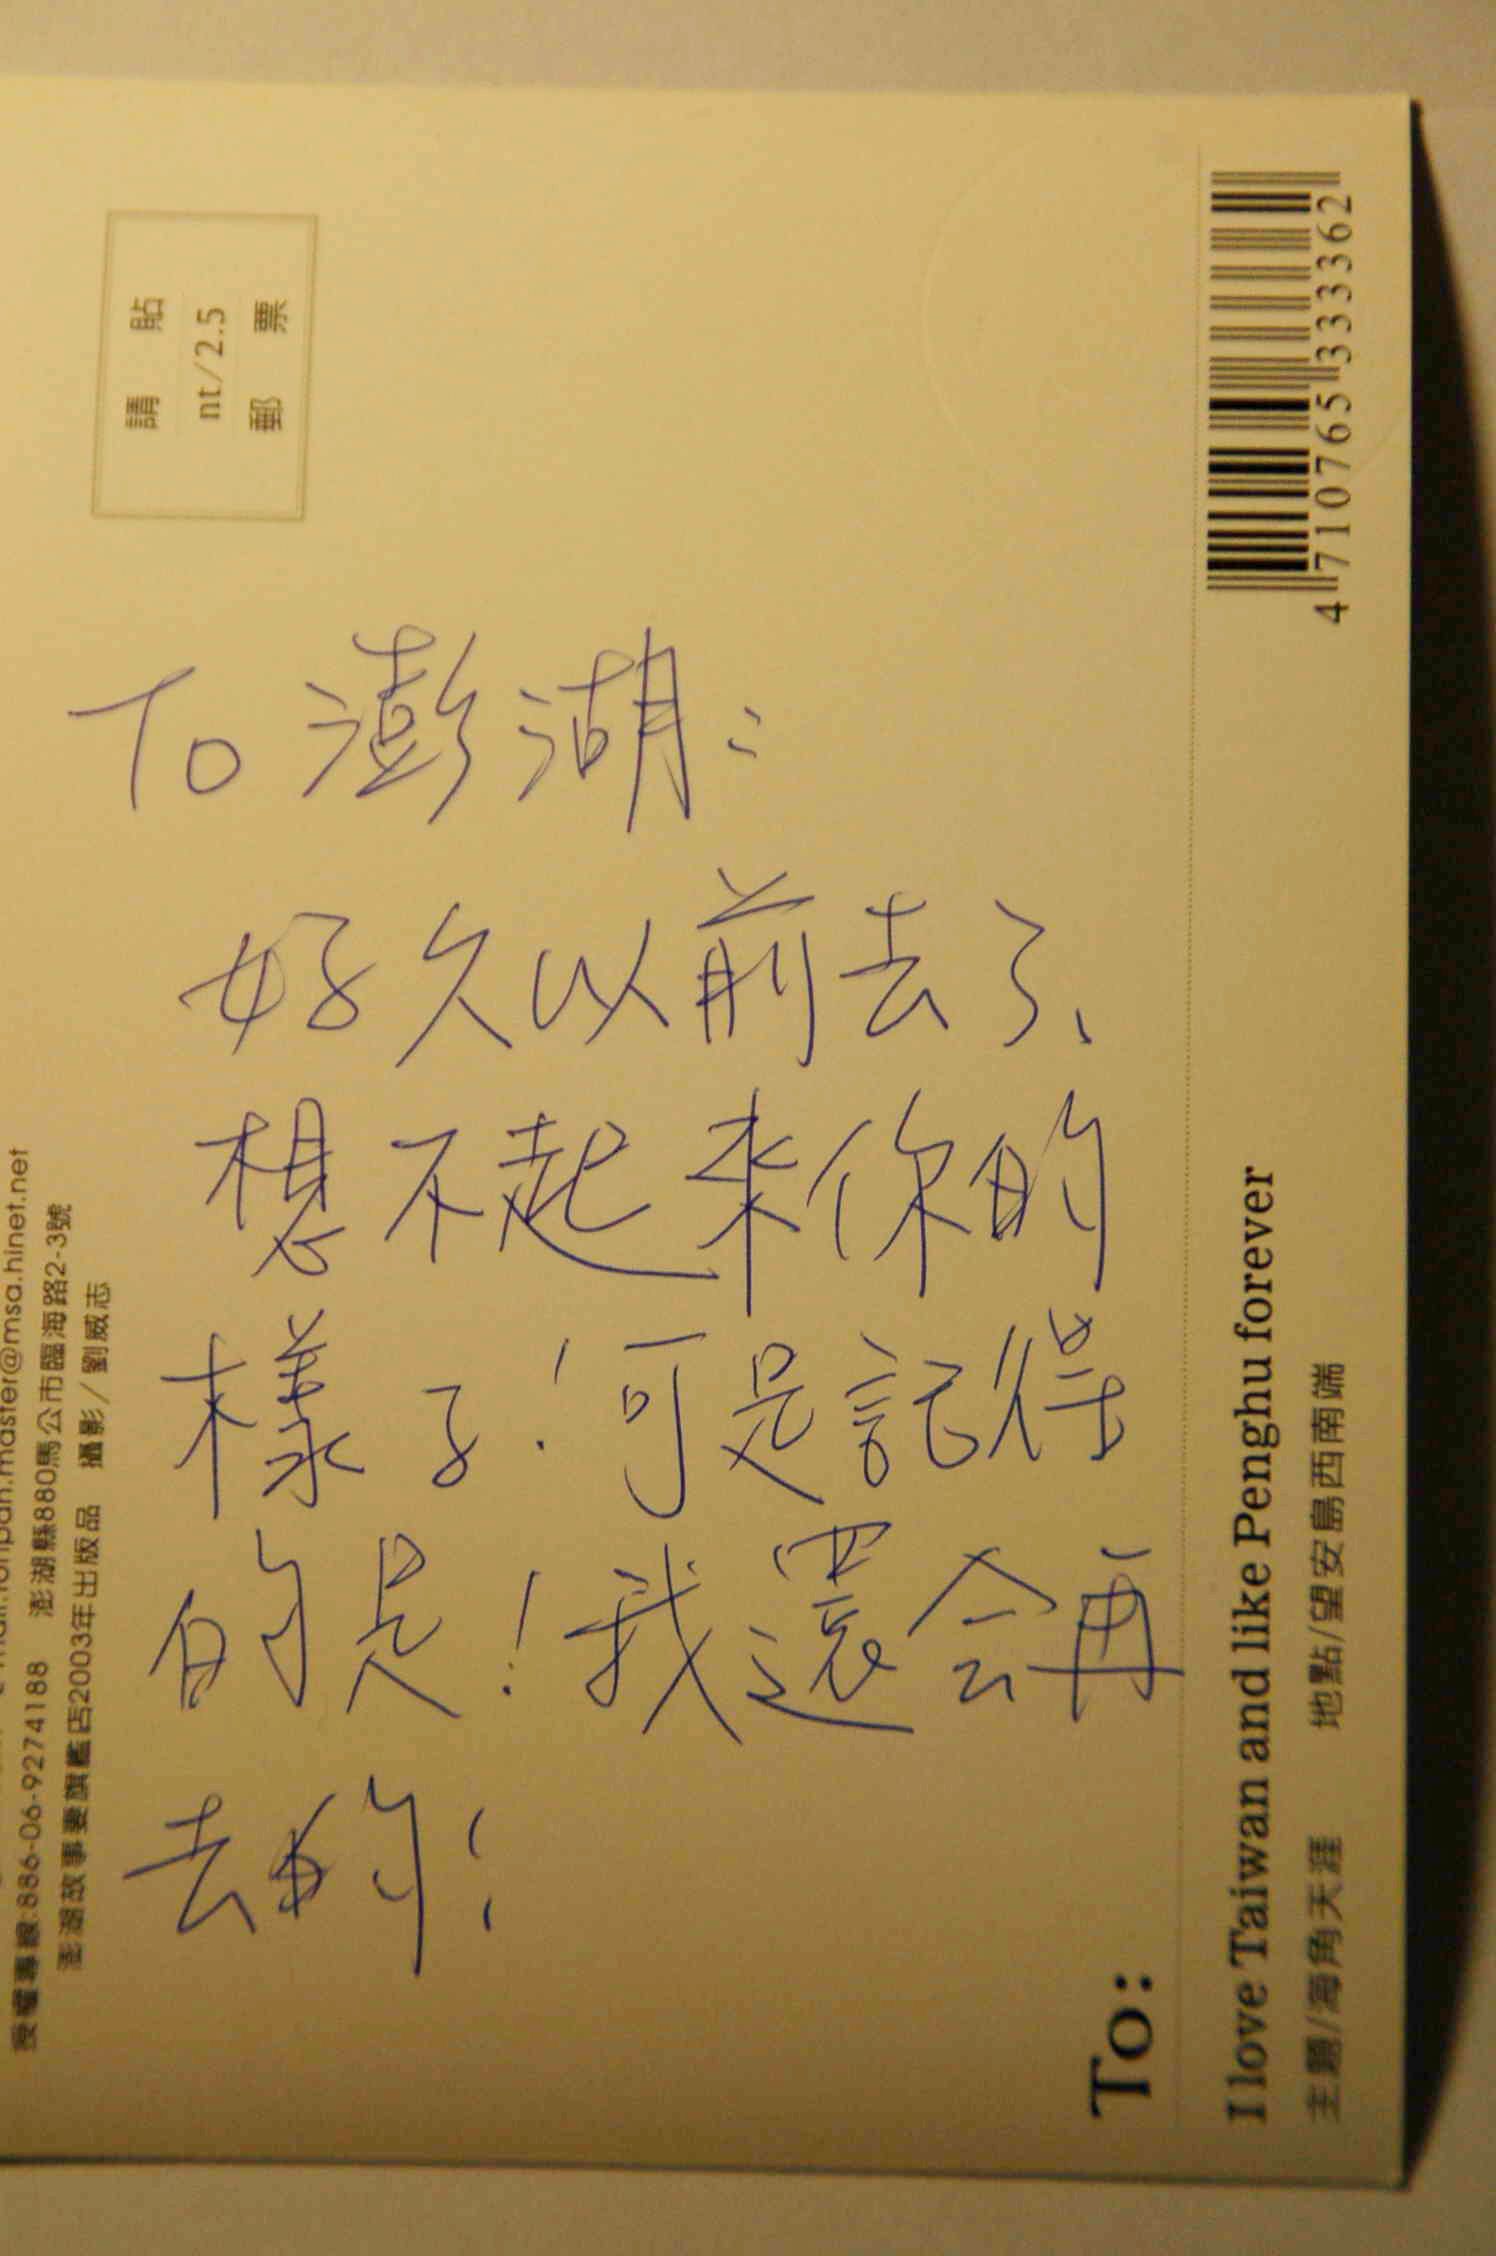 To 澎湖：
好久以前去了、
想不起來你的
樣子！可是記得
的是！我還会再
去的！
請貼
nt/2.5
郵票
授權專線:886-06-9274188
澎湖縣880馬公市臨海路2-3號
澎湖故事妻旗艦店2003年出版品 攝影／劉威志
To:
I love Taiwan and like Penghu forever
主題/海角天涯 地點/望安島西南端
4710765333362